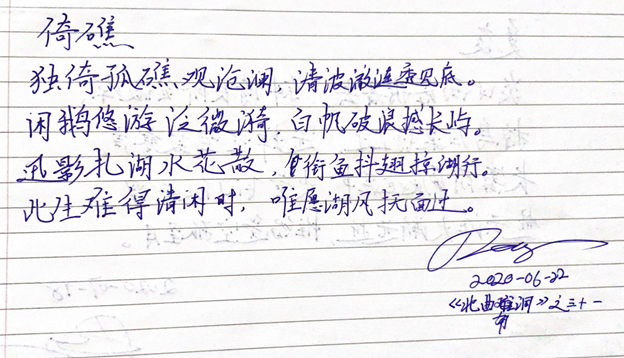 倚礁
独倚孤礁观沧澜,清波涟见底。
闲鹅悠游泛微漪,白帆破浪撼长屿。
迅影扎湖水花散,衔鱼抖翅掠湖行。
此生难得清闲时,唯愿湖风抚面迁。
2020-06-22
《北曲洞》之三十一